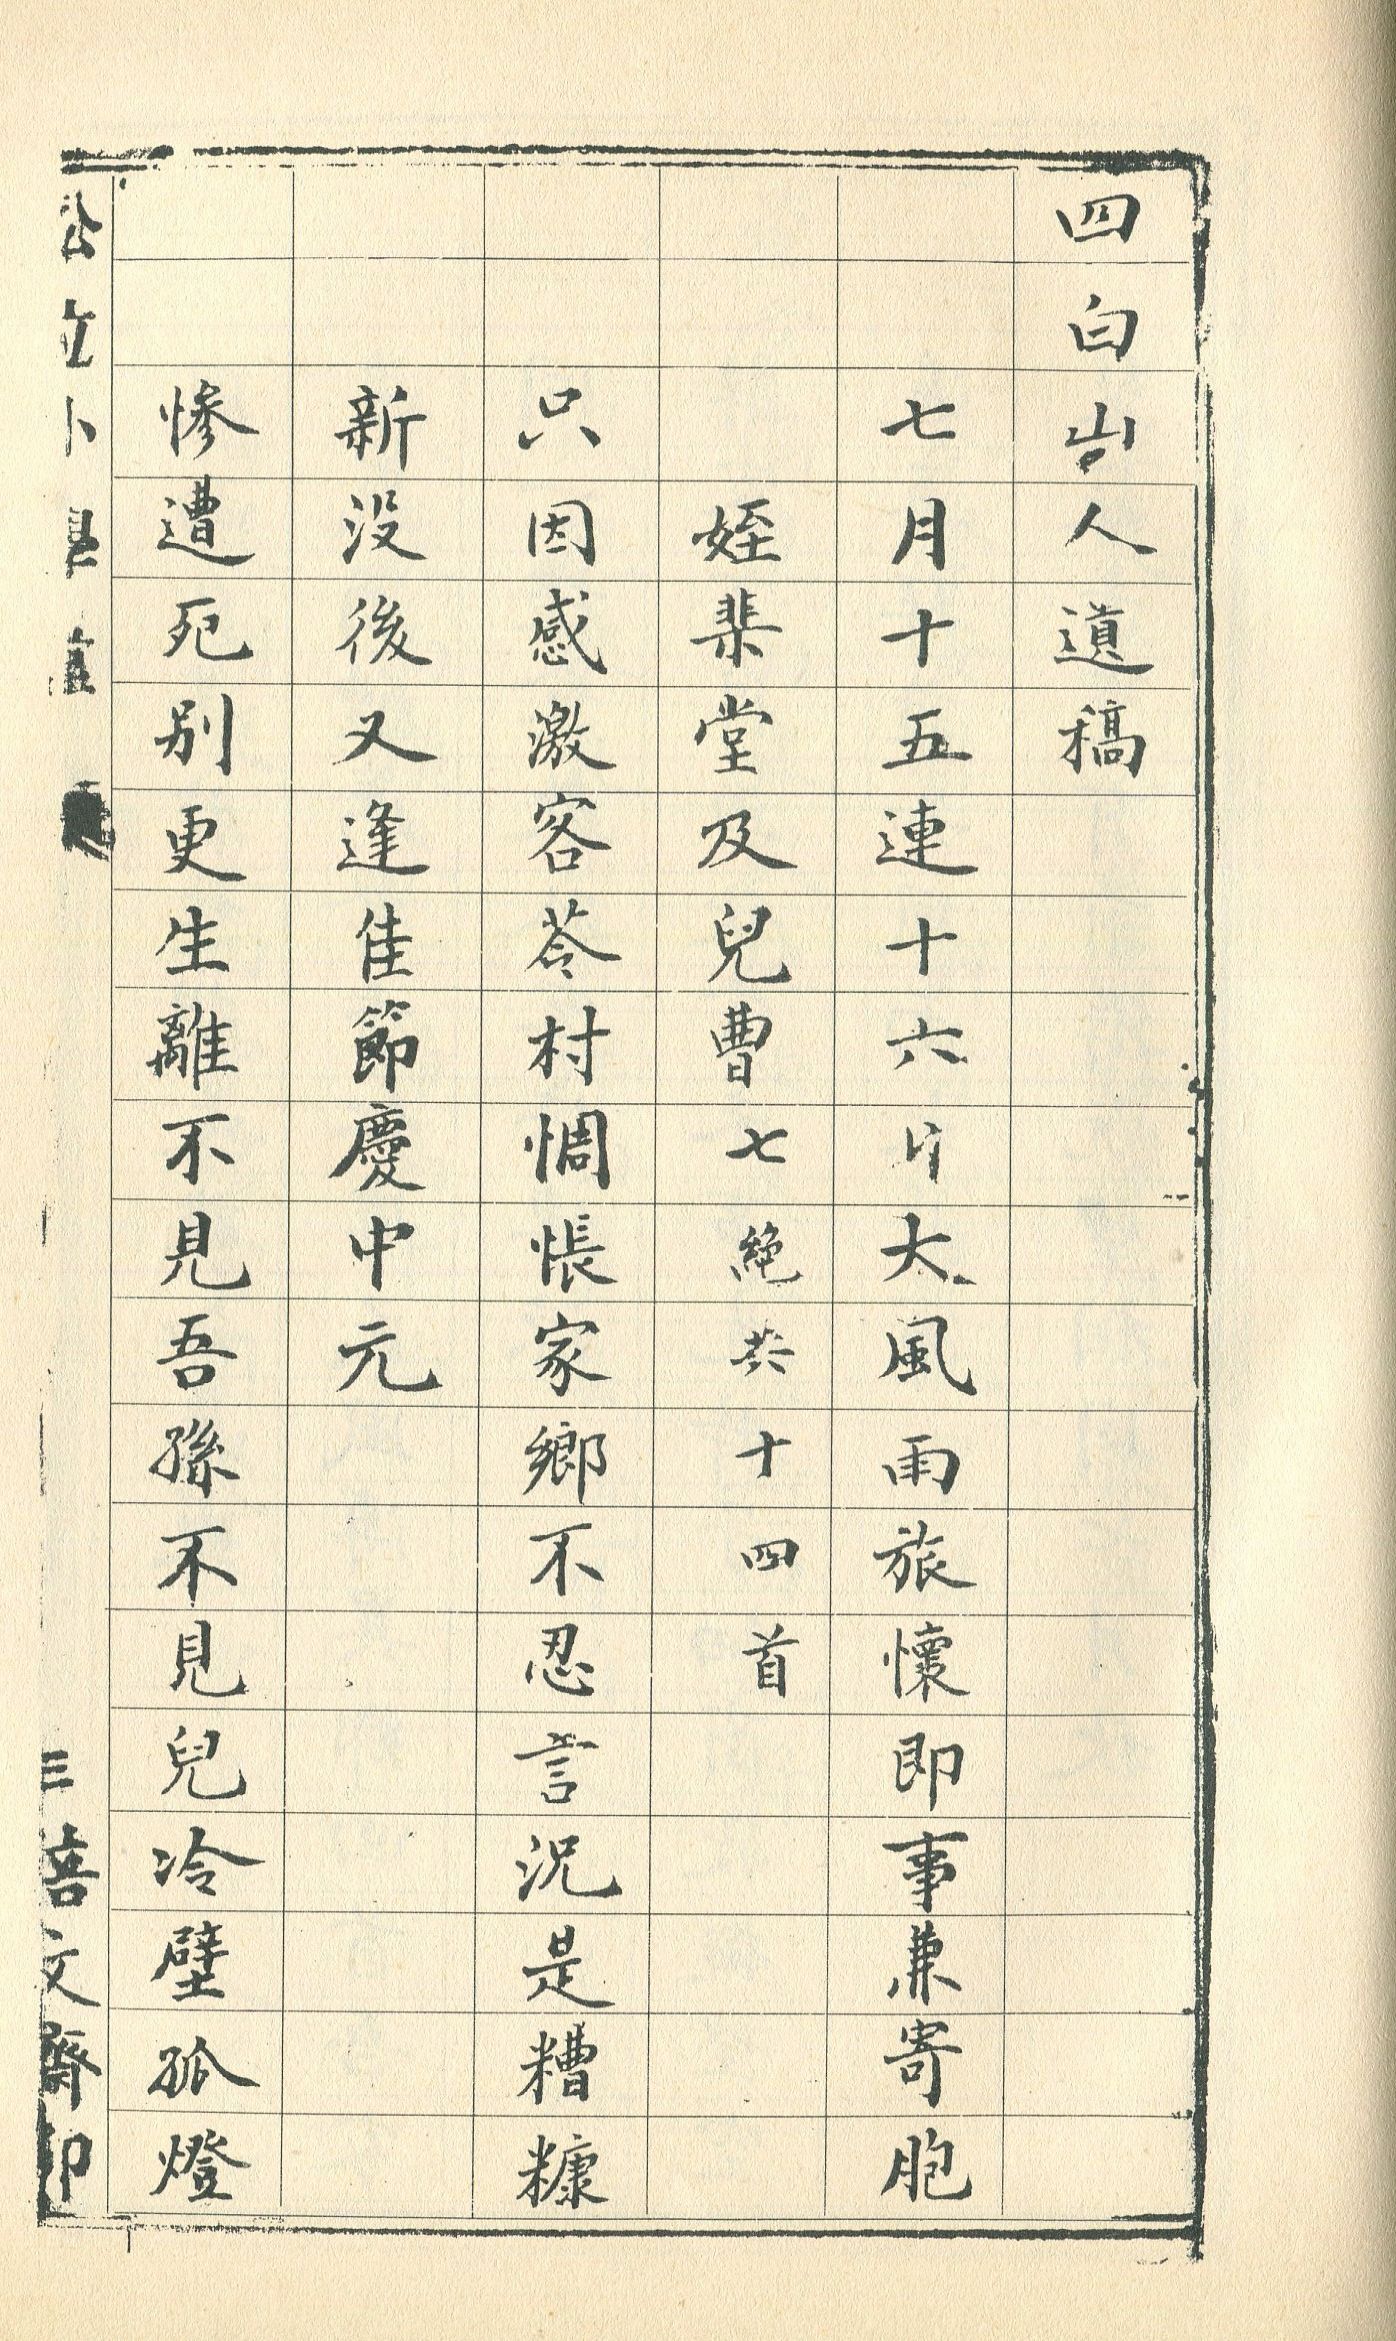 四白山人遺稿
七月十五連十六日大風雨旅懷即事兼寄胞
姪棐堂及兒曹七絕共十四首
只因感激客苓村惆悵家鄉不忍言況是糟糠
新没後又逢佳節慶中元
慘遭死別更生離不見吾孫不見兒冷壁孤燈
文齋印